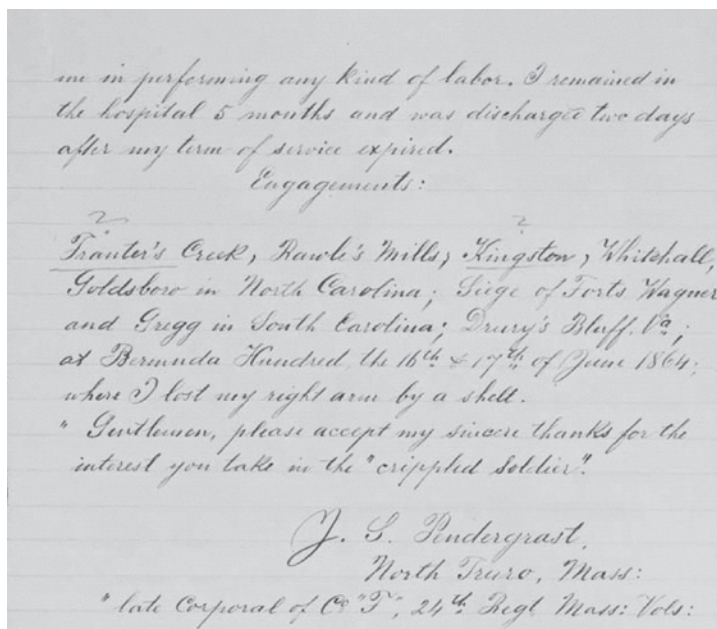 me in performing any kind of labor. I remained in
the hospital 5 months and was discharged two days
after my term of service expired.
Engagements:
? ?
Tranter's Creek, Rawle's Mills; Kingston, Whitehall,
Goldsboro in North Carolina; Siege of Forts Wagner
and Gregg in South Carolina; Drury's Bluff, Va;
at Bermunda Hundred, the 16th & 17th of June 1864;
where I lost my right arm by a shell.
" Gentlemen, please accept my sincere thanks for the
interest you take in the "crippled Soldier".
J. S. Pendergrast,
North Truro, Mass:
" late Corporal of Co "F", 24th Regt Mass: Vols: